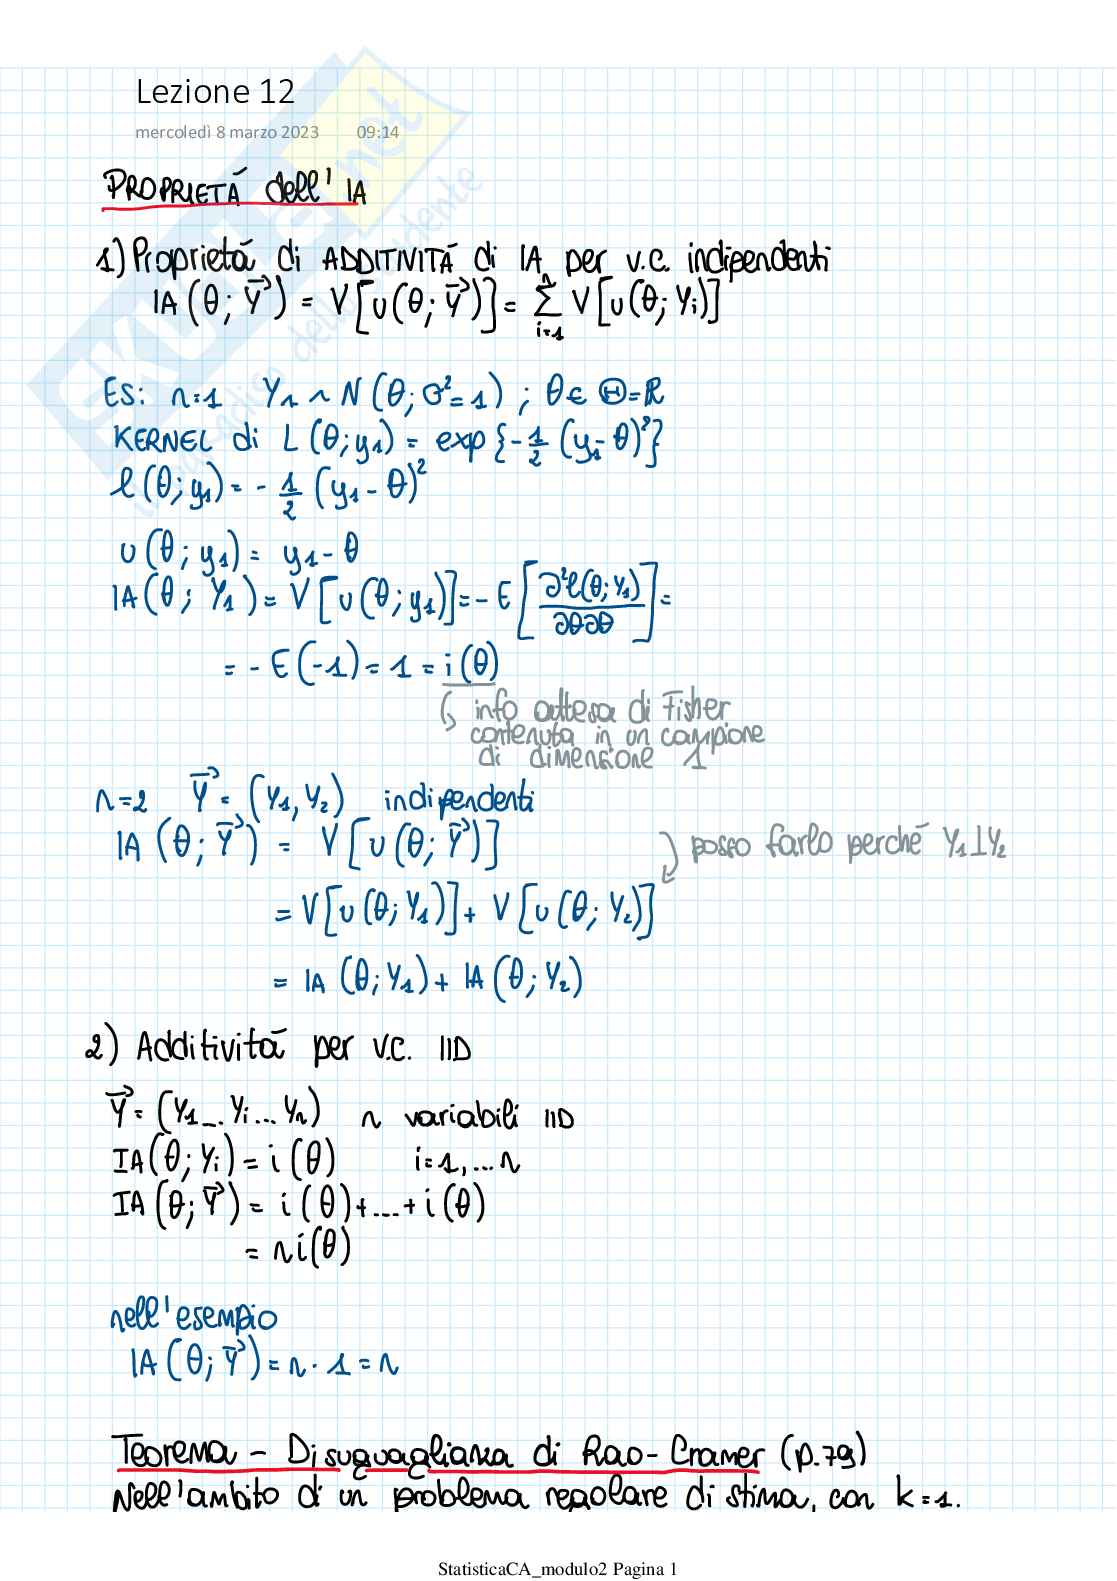 Lezione 12
mercoledì 8 marzo 2023 09:14
PROPRIETÁ dell' IA
1) Proprietá di ADDITIVITÁ di IA per v.c. indipendenti
IA (θ; Y⃗) = V[u(θ; Y⃗)] = Σⁿᵢ₌₁ V[u(θ; Yi)]
ES: n=1 Y₁ ~ N(θ; σ²=1) ; θ∈ Θ=ℝ
KERNEL di L(θ; y₁) = exp{-1/2 (y₁-θ)²}
ℓ(θ; y₁) = - 1/2 (y₁-θ)²
u(θ; y₁) = y₁-θ
IA(θ; Y₁) = V[u(θ; y₁)] = - E[∂²ℓ(θ; Y₁)/∂θ∂θ] =
= - E(-1) = 1 = i(θ)
↳ info attesa di Fisher
contenuta in un campione
di dimensione 1
n=2 Y⃗ = (Y₁, Y₂) indipendenti
IA (θ; Y⃗) = V[u(θ; Y⃗)]
posso farlo perché Y₁⊥Y₂
= V[u(θ; Y₁)] + V[u(θ; Y₂)]
= IA (θ; Y₁) + IA (θ; Y₂)
2) Additivitá per v.c. IID
Y⃗ = (Y₁... Yi... Yn) n variabili IID
IA(θ; Yi) = i(θ) i=1,...n
IA(θ; Y⃗) = i(θ)+...+i(θ)
= ni(θ)
nell'esempio
IA(θ; Y⃗) = n·1 = n
Teorema - Disuguaglianza di Rao-Cramer (p.79)
Nell'ambito di un problema regolare di stima, con k=1.
StatisticaCA_modulo2 Pagina 1